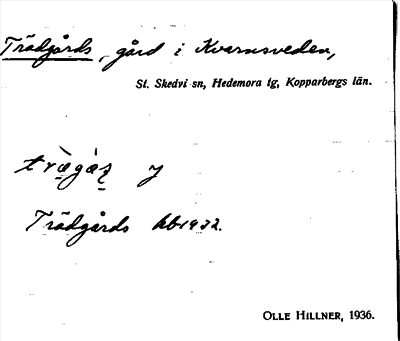 Trädgårds, gård i Kvarnsveden,
St. Skedvi sn, Hedemora tg, Kopparbergs län.
Trädgårds kb 1932.
OLLE HILLNER, 1936.